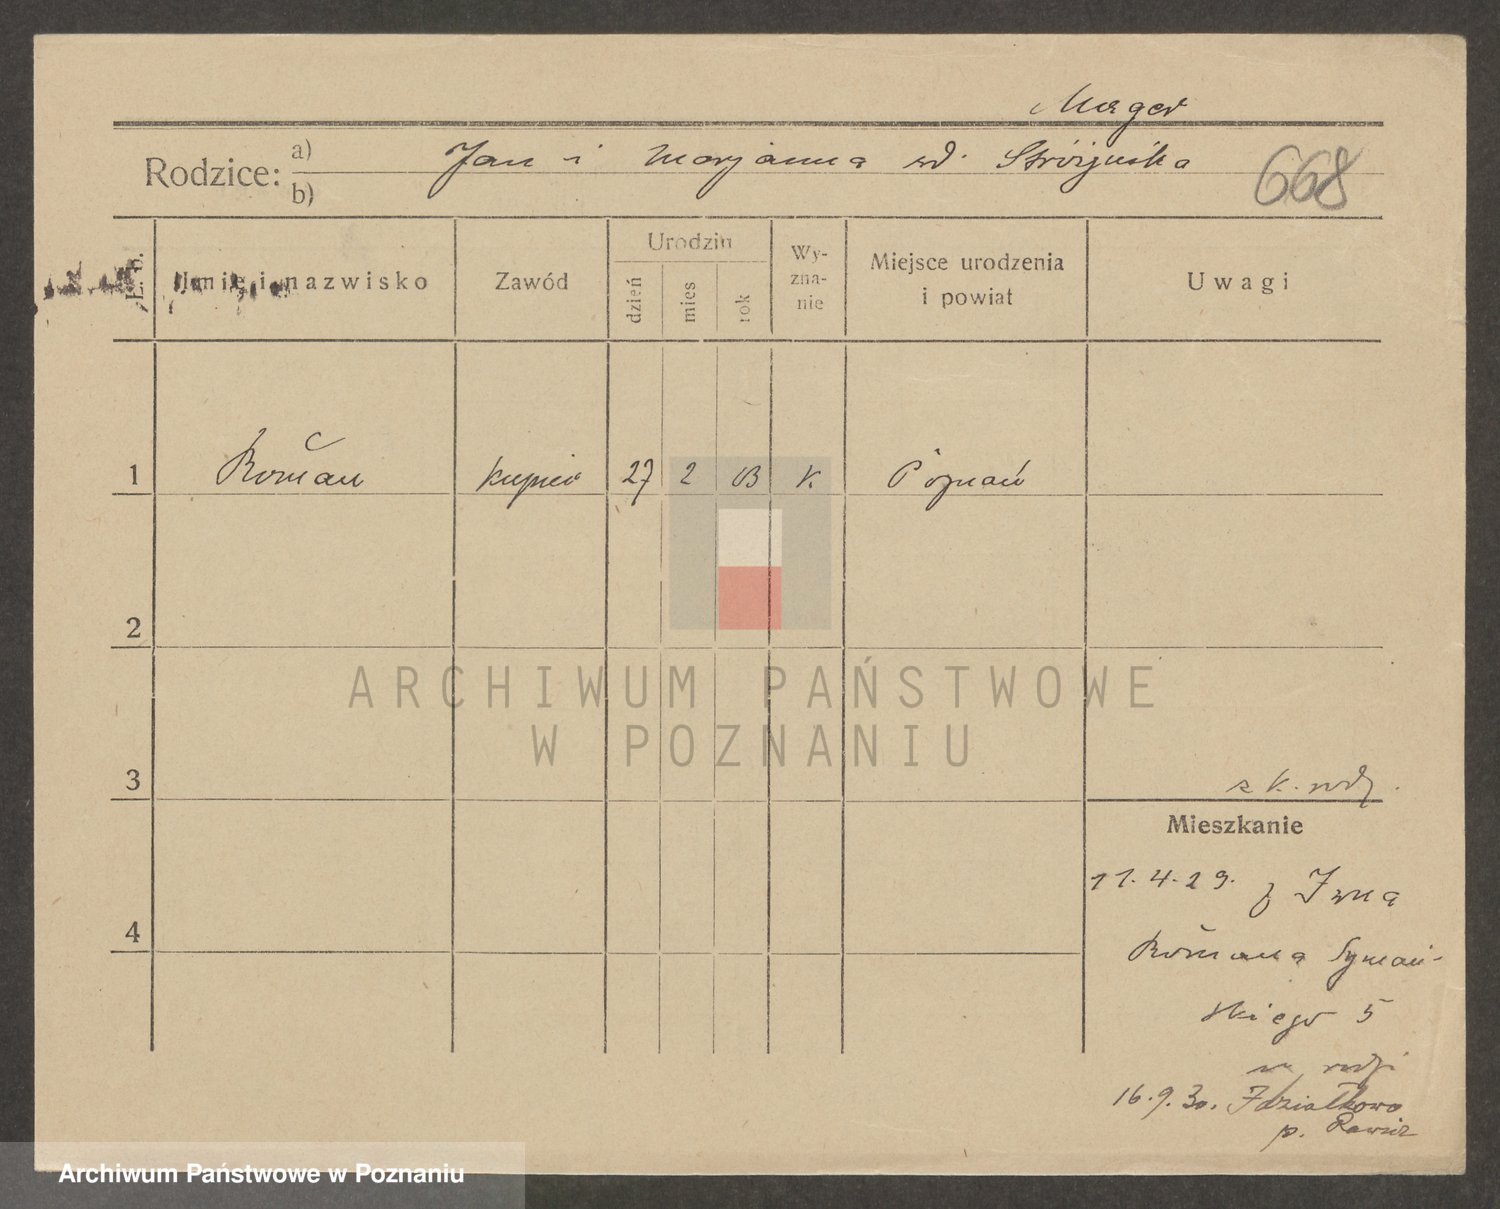 Mager
Rodzice: a) b) Jan i Marjanna wd. Stróżyńska
668
L. b. Imię i nazwisko Zawód Urodzin dzień mies rok Wyznanie Miejsce urodzenia i powiat Uwagi
1 Roman kupiec 27 2 03 k. Poznań
2
3
4
Mieszkanie
11.4.29. z
Romana Szymań-
skiego 5
16.9.30. Działkowo
p. Rawicz
ARCHIWUM PAŃSTWOWE
W POZNANIU
Archiwum Państwowe w Poznaniu